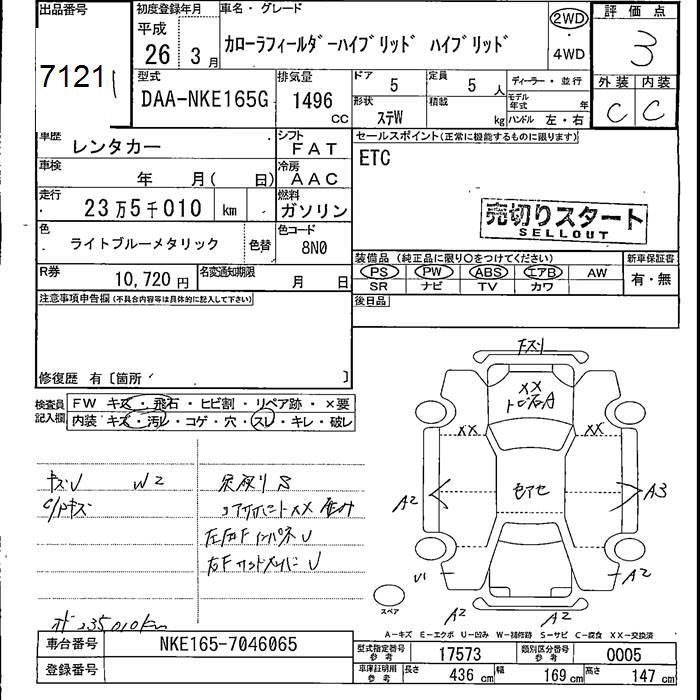 出品番号 初度登録年月 車名・グレード 評価点
7121 平成 26 3月 カローラフィールダーハイブリッド ハイブリッド 2WD・4WD 3
型式 排気量 ドア 5 定員 5人 ディーラー・並行 外装 内装
DAA-NKE165G 1496 CC 形状 ステW 積載 kg モデル年式 年 ハンドル 左・右 C C
車歴 レンタカー シフト FAT セールスポイント(正常に機能するものに限ります)
車検 年 月( 日) 冷房 AAC ETC
走行 23万5千010 km 燃料 ガソリン 売切りスタート
SELLOUT
色 ライトブルーメタリック 色替 色コード 8N0
装備品(純正品に限り○をつけてください) 新車保証書
R券 10,720円 名変通知期限 月 日 PS PW ABS エアB AW 有・無
SR ナビ TV カワ
注意事項申告欄(不具合内容等は具体的に記入して下さい) 後日品
修復歴 有〔箇所 〕
検査員記入欄 FW キズ・飛石・ヒビ割・リペア跡・×要
内装 キズ・汚レ・コゲ・穴・スレ・キレ・破レ
キズU W2
XX
XX XX
A2 A3
U1 A2
A2 A2
スペア
235010km
A-キズ E-エクボ U-凹み W-補修跡 S-サビ C-腐食 XX-交換済
車台番号 NKE165-7046065 型式指定番号 参考 17573 類別区分番号 参考 0005
登録番号 車庫証明用 参考 長さ 436cm 幅 169cm 高さ 147cm